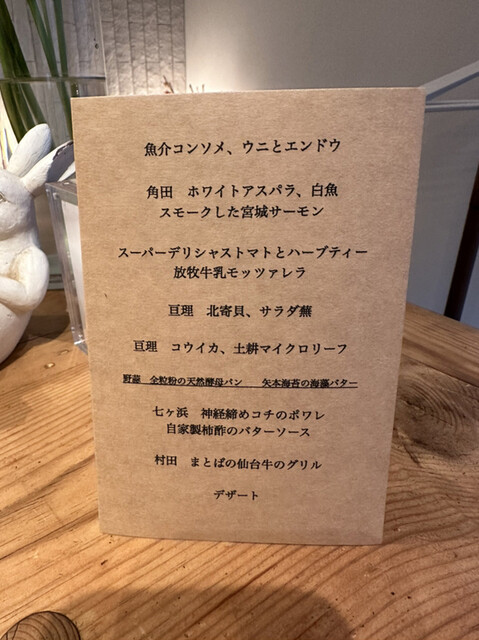 魚介コンソメ、ウニとエンドウ
角田　ホワイトアスパラ、白魚
スモークした宮城サーモン
スーパーデリシャストマトとハーブティー
放牧牛乳モッツァレラ
亘理　北寄貝、サラダ蕪
亘理　コウイカ、土耕マイクロリーフ
野蒜　全粒粉の天然酵母パン　　矢本海苔の海藻バター
七ヶ浜　神経締めコチのポワレ
自家製柿酢のバターソース
村田　まとばの仙台牛のグリル
デザート